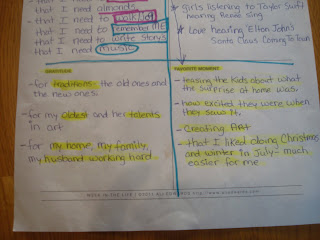 that I need almonds.
that I need to
that I need to remember life
that I need to write storys
that I need music
girls listening to Taylor Swift
hearing Reme sing
love hearing "Elton John's"
Santa Claus coming to town
GRATITUDE
- for traditions the old ones and
the new ones.
- for my oldest and her talents
in art
- for my home, my family,
my husband working hard.
FAVORITE MOMENT
- teasing the kids about what
the surprise at home was.
- how excited they were when
they saw it.
- Creating Art
- that I liked doing Christmas
and winter in July - much
easier for me
WEEK IN THE LIFE / ©2011 ALI EDWARDS http://www.aliedwards.com